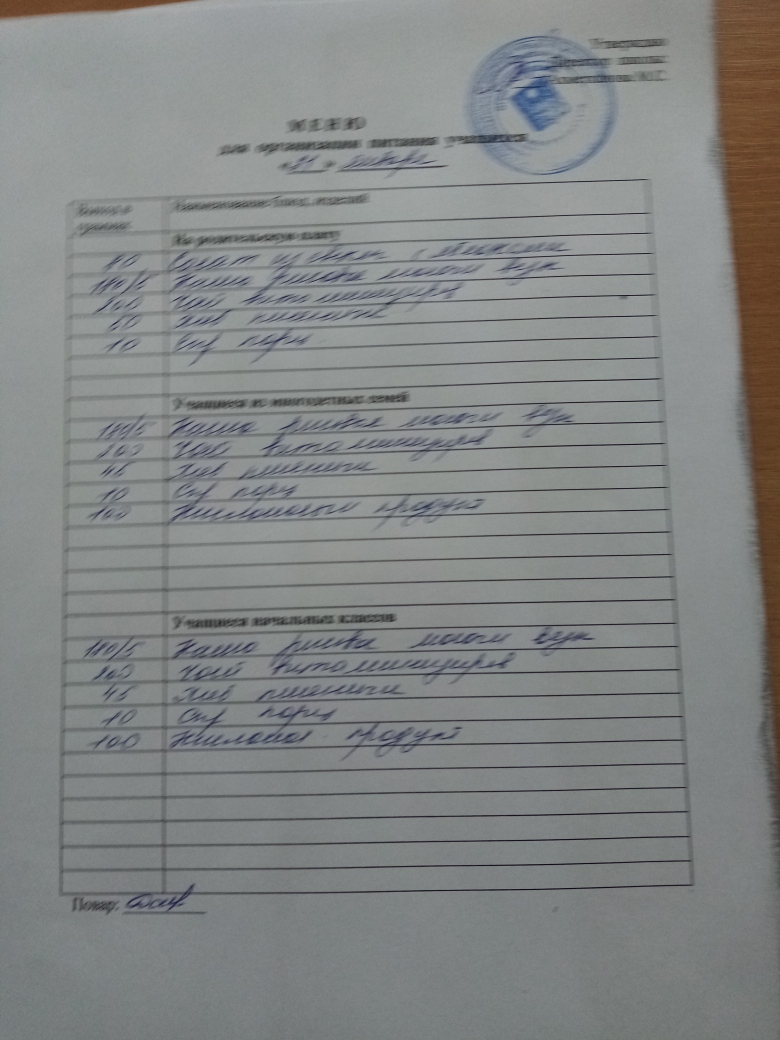 Утверждаю
Директор школы
МЕНЮ
для организации питания учащихся
«21» января
Выход в граммах
Наименование блюд, изделий
За родительскую плату
Салат из свеклы с яблоками
180/5 Каша рисовая молочн вязк
200 Чай витаминизиров
50 Хлеб пшеничн
10 Сыр порц
Учащиеся из многодетных семей
180/5 Каша рисовая молочн вязк
200 Чай витаминизиров
45 Хлеб пшеничн
10 Сыр порц
100 Кисломолочн продукт
Учащиеся начальных классов
180/5 Каша рисовая молочн вязк
200 Чай витаминизиров
45 Хлеб пшеничн
10 Сыр порц
100 продукт
Повар: